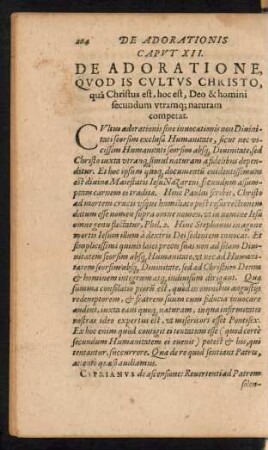 204 DE ADORATIONIS
CAPVT XII.
DE ADORATIONE,
QVOD IS CVLTVS CHRISTO,
quà Christus est, hoc est, Deo & homini
secundum vtramq; naturam
competat.
CVltus adorationis siue inuocationis non Diuinitati
seorsim exclusâ Humanitate, sicut nec vicissim
Humanitati seorsim absq; Diuinitate, sed
Christo iuxta vtramq; simul naturam à fidelibus dependitur.
Et hoc ipsum quoq; documentū euidentissimum
est diuinæ Maiestatis Iesu Nazareni, secundum assumptam
carnem ei traditæ. Hinc Paulus scribit, Christo
ad mortem crucis vsque humiliato post resurrectionem
datum esse nomen supra omne nomen, vt in nomine Iesu
omne genu flectatur, Phil. 2. Hinc Stephanus in agone
mortis Iesum illum à dextris Dei sedentem inuocat. Et
simplicissimi quiuis laici preces suas non ad solam Diuinitatem
seorsim absq; Humanitate, vt nec ad Humanitatem
seorsim absq; Diuinitate, sed ad Christum Deum
& hominem integrum atq; indiuisum dirigunt. Quæ
summa consolatio piorū est, quòd in omnibus angustijs
redemptorem, & fratrem suum cum fiducia inuocare
audent, iuxta eam quoq; naturam, in qua infirmitates
nostras ideo expertus est, vt misericors esset Pontifex.
Ex hoc enim quod contigit ei tentatum esse (quod certè
secundum Humanitatem ei euenit) potest & his, qui
tentantur, succurrere. Qua de re quid sentiant Patres,
attenti quæso audiamus.
CYPRIANVS de ascensione: Reuertenti ad Patrem